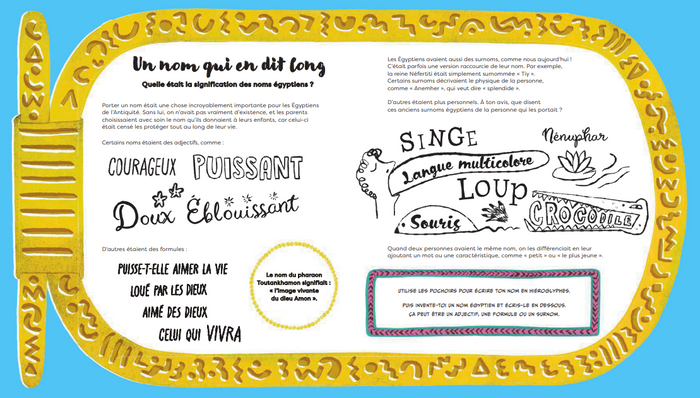 Un nom qui en dit long
Quelle était la signification des noms égyptiens ?
Porter un nom était une chose incroyablement importante pour les Égyptiens
de l'Antiquité. Sans lui, on n'avait pas vraiment d'existence, et les parents
choisissaient avec soin le nom qu'ils donnaient à leurs enfants, car celui-ci
était censé les protéger tout au long de leur vie.
Certains noms étaient des adjectifs, comme :
COURAGEUX PUISSANT
Doux Éblouissant
D'autres étaient des formules :
PUISSE-T-ELLE AIMER LA VIE
LOUÉ PAR LES DIEUX
AIMÉ DES DIEUX
CELUI QUI VIVRA
Le nom du pharaon
Toutankhamon signifiait :
« l'image vivante
du dieu Amon ».
Les Égyptiens avaient aussi des surnoms, comme nous aujourd'hui !
C'était parfois une version raccourcie de leur nom. Par exemple,
la reine Néfertiti était simplement surnommée « Tiy ».
Certains surnoms décrivaient le physique de la personne,
comme « Anemher », qui veut dire « splendide ».
D'autres étaient plus personnels. À ton avis, que disent
ces anciens surnoms égyptiens de la personne qui les portait ?
SINGE
Nénuphar
Langue multicolore
LOUP
Souris
CROCODILE
Quand deux personnes avaient le même nom, on les différenciait en leur
ajoutant un mot ou une caractéristique, comme « petit » ou « le plus jeune ».
UTILISE LES POCHOIRS POUR ÉCRIRE TON NOM EN HIÉROGLYPHES.
PUIS INVENTE-TOI UN NOM ÉGYPTIEN ET ÉCRIS-LE EN DESSOUS.
ÇA PEUT ÊTRE UN ADJECTIF, UNE FORMULE OU UN SURNOM.